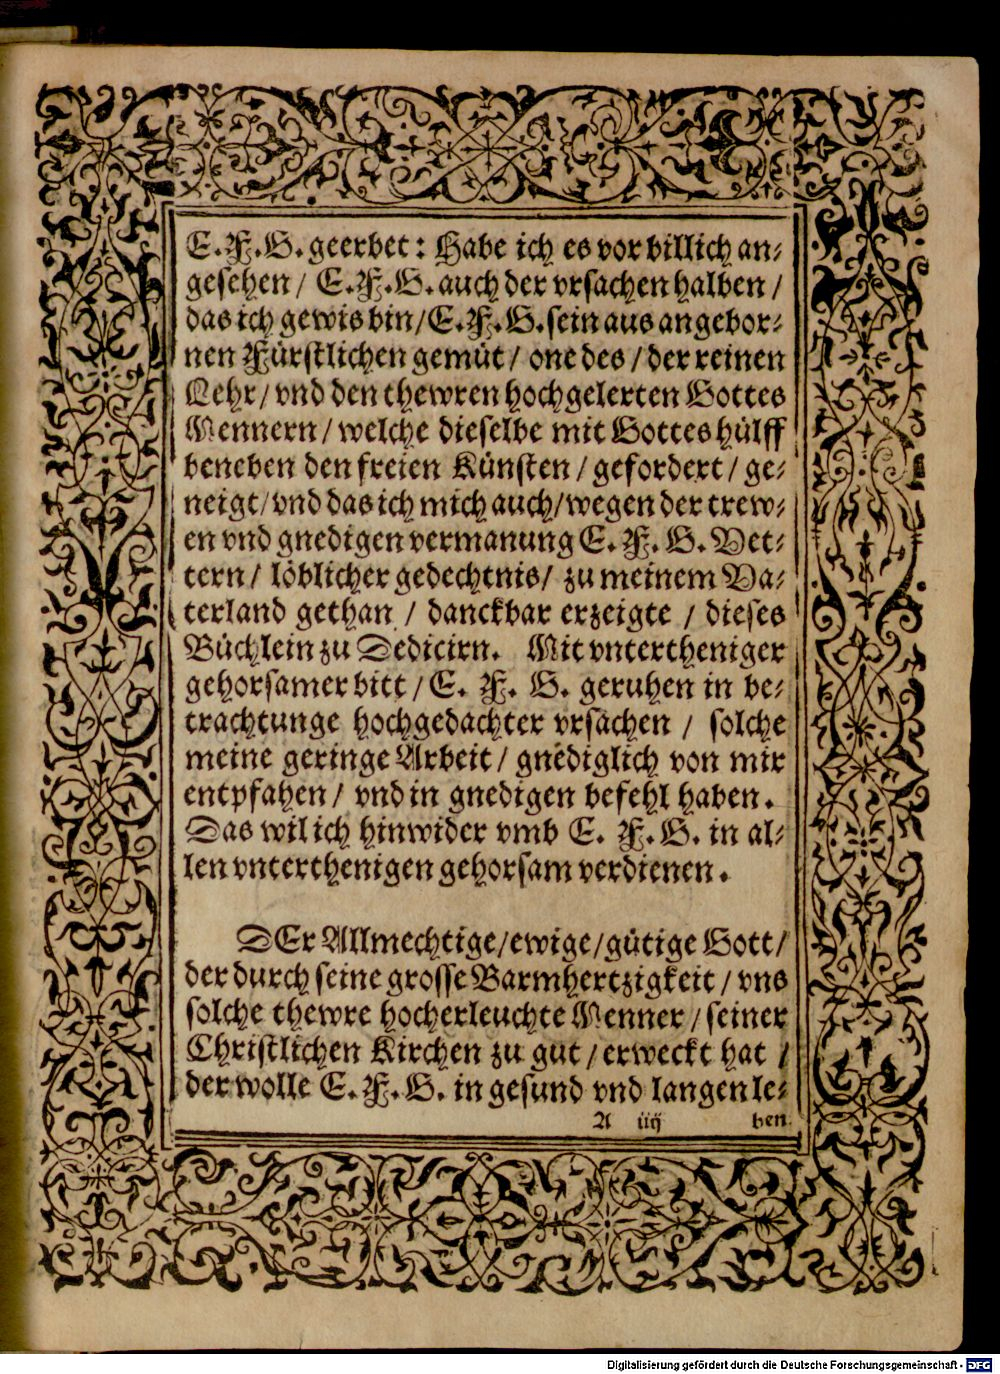 E.F.G. geerbet: Habe ich es vor billich an-
gesehen / E.F.G. auch der vrsachen halben /
das ich gewis bin / E.F.G. sein aus angebor-
nen Fürstlichen gemüt / one des / der reinen
Lehr / vnd den thewren hochgelerten Gottes
Mennern / welche dieselbe mit Gottes hülff
beneben den freien Künsten / gefordert / ge-
neigt / vnd das ich mich auch / wegen der trew-
en vnd gnedigen vermanung E. F. G. Vet-
tern / löblicher gedechtnis / zu meinem Va-
terland gethan / danckbar erzeigte / dieses
Büchlein zu Dedicirn. Mit vntertheniger
gehorsamer bitt / E. F. G. geruhen in be-
trachtunge hochgedachter vrsachen / solche
meine geringe Arbeit / gnediglich von mir
entpfahen / vnd in gnedigen befehl haben.
Das wil ich hinwider vmb E. F. G. in al-
len vnterthenigen gehorsam verdienen.
DEr Allmechtige / ewige / gütige Gott /
der durch seine grosse Barmhertzigkeit / vns
solche thewre hocherleuchte Menner / seiner
Christlichen Kirchen zu gut / erweckt hat /
der wolle E. F. G. in gesund vnd langen le-
A iiij ben
Digitalisierung gefördert durch die Deutsche Forschungsgemeinschaft - DFG